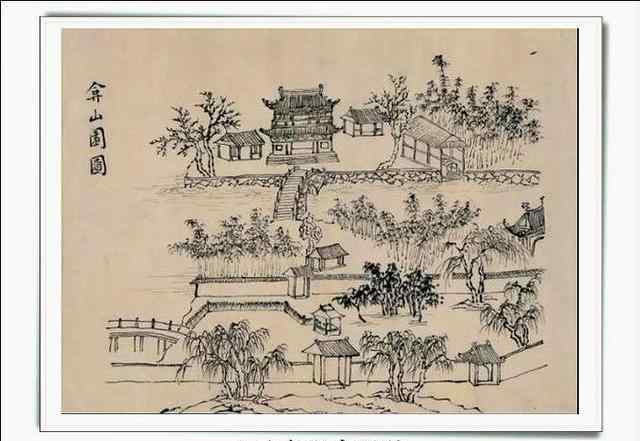 弇山園圖